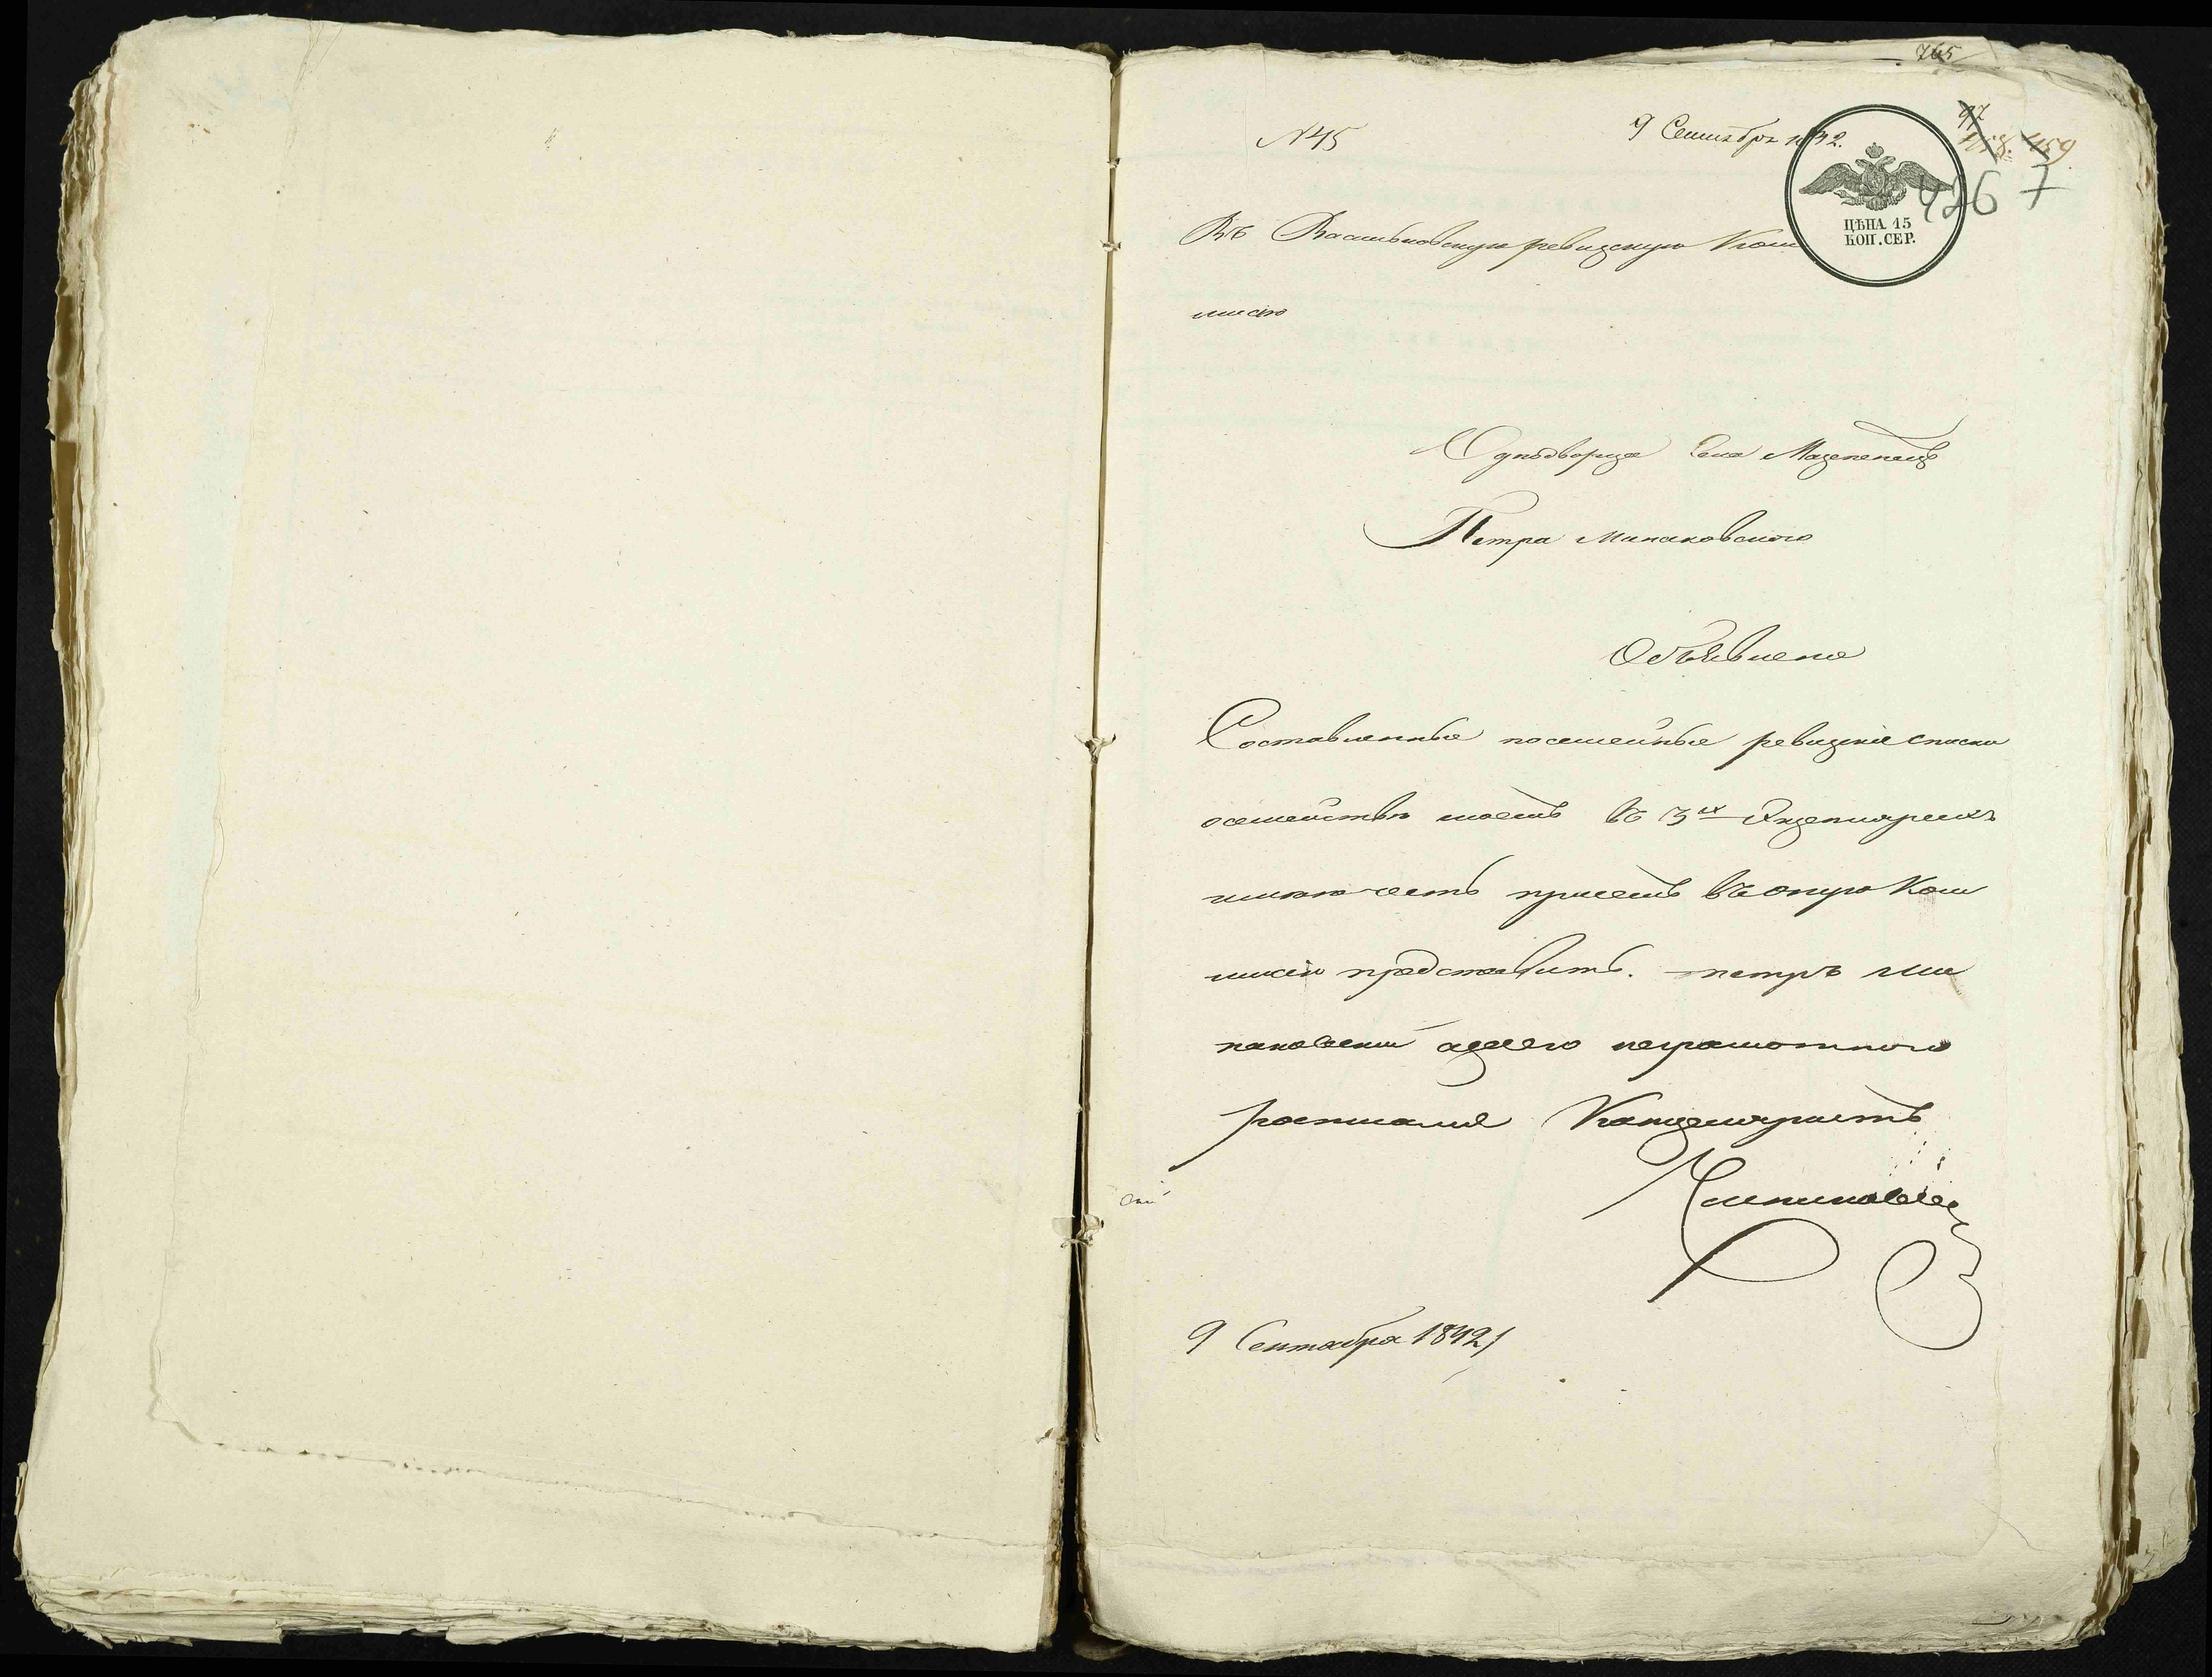 765
97
N 45
9 Сентября 1842.
158. 159
426 7
ЦѢНА 15
КОП. СЕР.
Въ Васильковскую ревизскую Ком
мисію
Однодворца Села Мазепенецъ
Петра Минаковского
Объявленіе
Составленные посемейные ревизкіе списки
осемействѣ моемъ въ 3ᵉˣ Экземплярахъ
имѣю честь присемъ въ оную Ком
мисію представить. петръ ми
наковскии азаего неграмотного
росписался Канцеляристъ
9 Сентября 1842